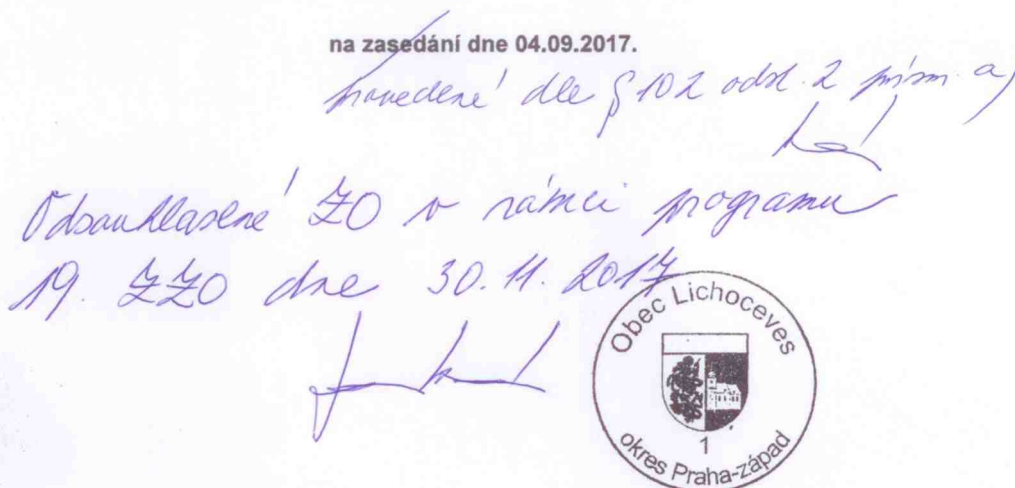 na zasedání dne 04.09.2017.
provedené dle § 102 odst. 2 písm. a)
Odsouhlasené ZO v rámci programu
19. ZZO dne 30.11.2017
Obec Lichoceves
1
okres Praha-západ